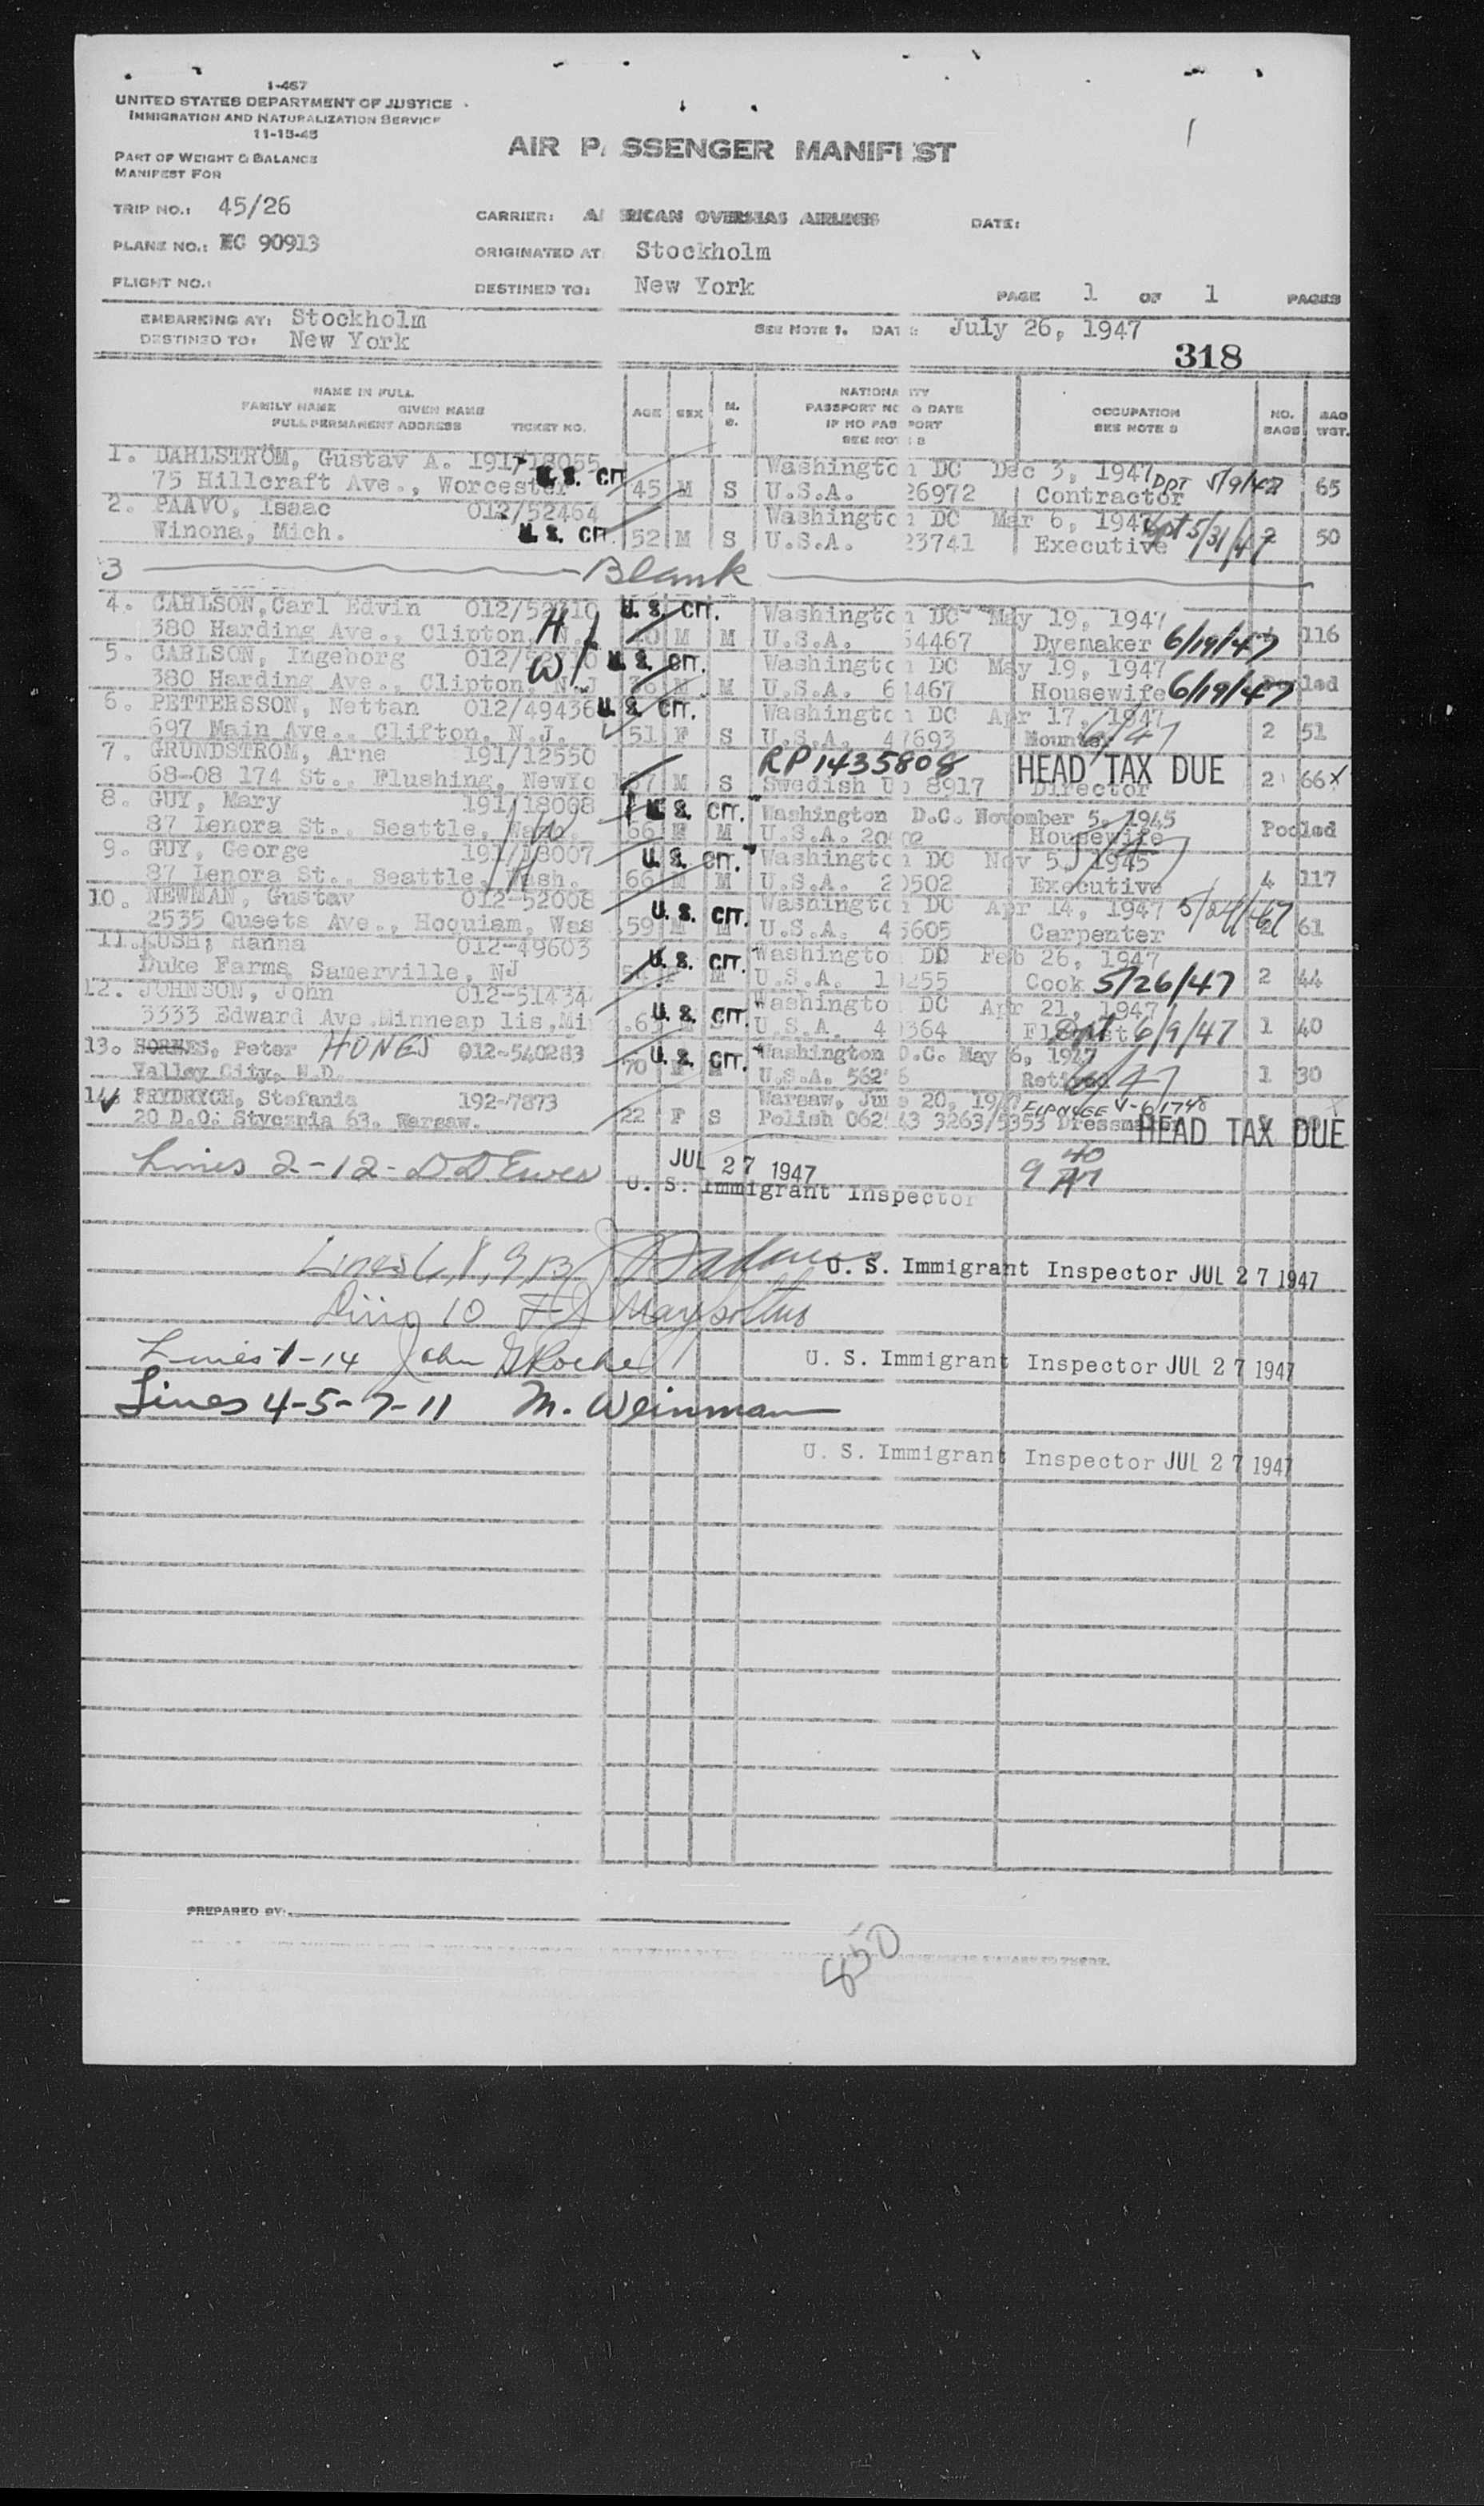 1-467
UNITED STATES DEPARTMENT OF JUSTICE
IMMIGRATION AND NATURALIZATION SERVICE
11-15-45
PART OF WEIGHT & BALANCE
MANIFEST FOR
AIR PA SSENGER MANIFE ST
TRIP NO.: 45/26
CARRIER: A RICAN OVERSEAS AIRLINES
DATE:
PLANE NO.: NC 90913
ORIGINATED AT: Stockholm
FLIGHT NO.:
DESTINED TO: New York
PAGE 1 OF 1 PAGES
EMBARKING AT: Stockholm
DESTINED TO: New York
SEE NOTE 1. DATE: July 26, 1947
318
NAME IN FULL
FAMILY NAME GIVEN NAME
FULL PERMANENT ADDRESS TICKET NO.
AGE SEX M. S.
NATIONA ITY
PASSPORT NO & DATE
IF NO PAS PORT
SEE NOT
OCCUPATION
SEE NOTE
NO. BAGS
BAG WGT.
1. DAHLSTRÖM, Gustav A. 191/18055 Washingto n DC Dec 3, 1947 DPT 5/9/47
75 Hillcraft Ave., Worcester U.S. CIT. 45 M S U.S.A. 26972 Contractor 65
2. PAAVO, Isaac 012/52464 Washingto n DC Mar 6, 1947 Dpt 5/31/47
Winona, Mich. U.S. CIT. 52 M S U.S.A. 23741 Executive 2 50
3 Blank
4. CARLSON, Carl Edvin 012/52710 U.S. CIT. Washingto n DC May 19, 1947
380 Harding Ave., Clipton, N.J H/ M M U.S.A. 54467 Dyemaker 6/19/47 116
5. CARLSON, Ingeborg 012/ W/ U.S. CIT. Washingto n DC May 19, 1947
380 Harding Ave., Clipton, N.J 36 M M U.S.A. 6 4467 Housewife 6/19/47 Pooled
6. PETTERSSON, Nettan 012/49436 U.S. CIT. Washingto n DC Apr 17, 1947
697 Main Ave., Clifton, N.J. 51 F S U.S.A. 4 7693 6/47 2 51
7. GRUNDSTRÖM, Arne 191/12550 RP 1435808 HEAD TAX DUE
68-08 174 St., Flushing, NewYo M S Swedish 8917 Director 2 66 x
8. GUY, Mary 191/18008 U.S. CIT. Washington D.C. November 5, 1945
87 Lenora St., Seattle, Wash. W 66 F M U.S.A. 20 02 Housewife Pooled
9. GUY, George 191/18007 U.S. CIT. Washingto n DC Nov 5, 1945
87 Lenora St., Seattle, Wash. H 66 M M U.S.A. 2 0502 Executive 4 117
10. NEWMAN, Gustav 012-52008 U.S. CIT. Washingto n DC Apr 14, 1947
2535 Queets Ave., Hoquiam, Was 59 M M U.S.A. 4 5605 Carpenter 61
11. KUSH, Hanna 012-49603 U.S. CIT. Washingto DC Feb 26, 1947
Duke Farms, Samerville, NJ M U.S.A. 1 255 Cook 5/26/47 2 44
12. JOHNSON, John 012-51434 U.S. CIT. Washingto DC Apr 21, 1947
3333 Edward Ave. Minneap lis, Mi U.S.A. 4 364 Dpt 6/9/47 1 40
13. Peter HONES 012-540283 U.S. CIT. Washington D.C. May 6, 1947
Valley City, N.D. 70 U.S.A. 562 6 Retired 6/47 1 30
14. FRYDRYCH, Stefania 192-7873 Warsaw, June 20, 1947
20 D.O: Stycznia 63. Warsaw. 22 F S Polish 062 43 3263/5353 Dressmaker HEAD TAX DUE
Lines 2-12- D D Ewes JUL 27 1947
U. S. Immigrant Inspector
Lines 6, 8, 9, 13 U. S. Immigrant Inspector JUL 27 1947
Line 10
Lines 1-14 John G Roche U. S. Immigrant Inspector JUL 27 1947
Lines 4-5-7-11 M. Weinman
U. S. Immigrant Inspector JUL 27 1947
PREPARED BY:
850